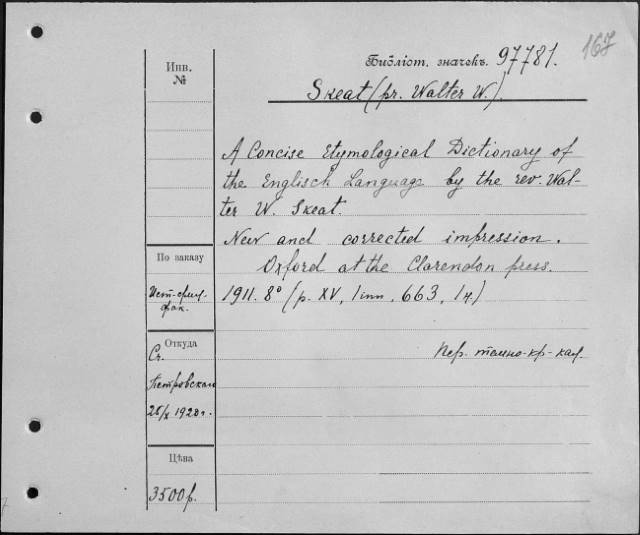 167
Библіот. значекъ. 97781.
Инв.
№
Skeat (pr. Walter W.)
A Concise Etymological Dictionary of
the Englisch Language by the rev. Wal-
ter W. Skeat.
New and corrected impression.
Oxford at the Clarendon press.
По заказу
1911. 8° (p. XV, 1 inn, 663, 1 ч.)
фак.
Откуда
Пер. темно-кр-кал.
Ст.
Петровская
1920 г.
Цѣна
3500 р.